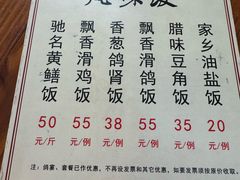 驰名黄鳝饭
飘香滑鸡饭
香葱鸽肾饭
飘香滑鸽饭
腊味豆角饭
家乡油盐饭
50 55 38 55 35 20
元/斤 元/例 元/例 元/例 元/例 元/例
注:鸽宴、套餐已作优惠,不再设发票和其它优惠,如要发票须按原价收取。